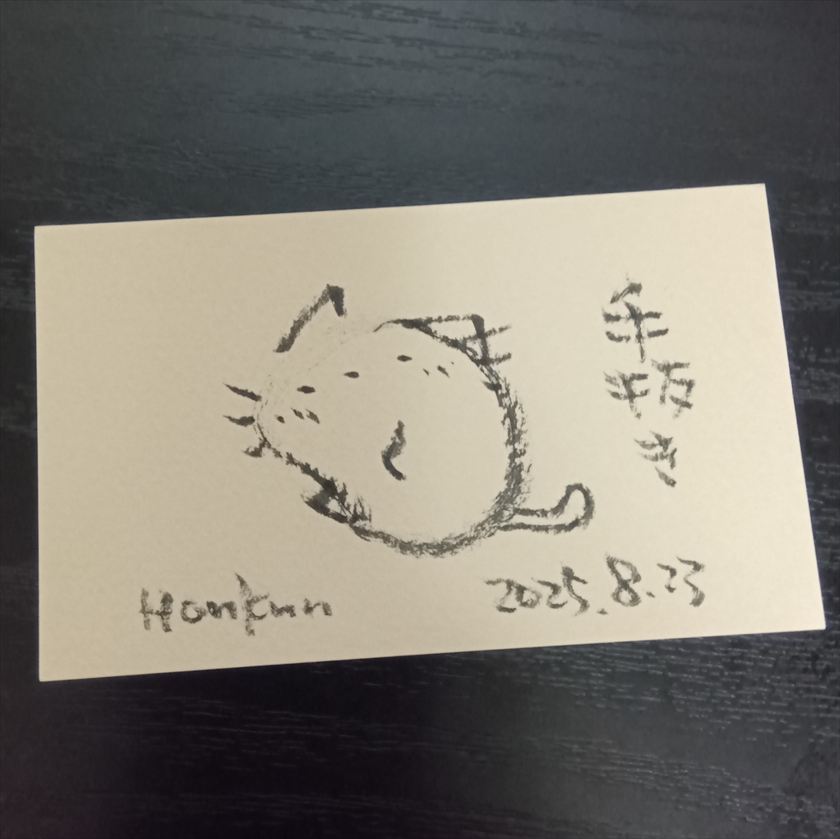 手抜き
Honkunn
2025.8.23